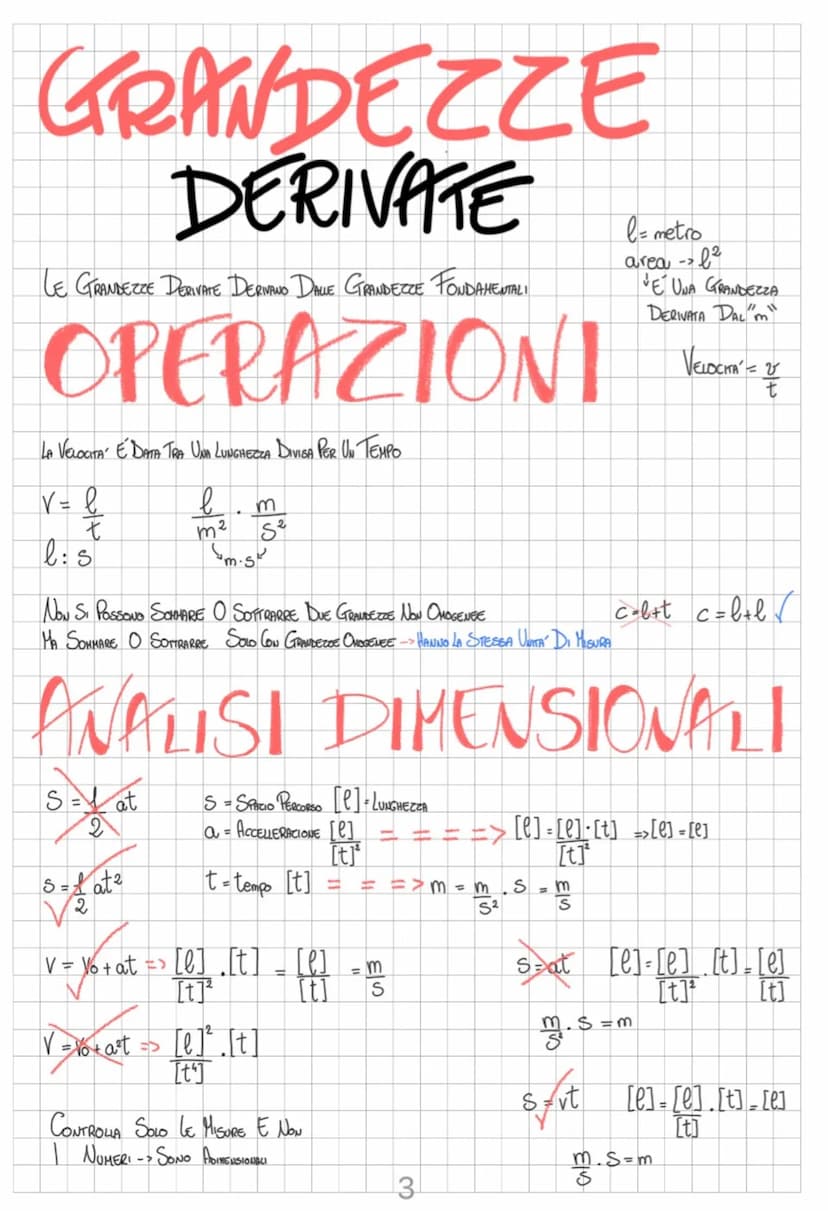 GRANDEZZE
DERIVATE
l = metro
area -> l²
LE GRANDEZZE DERIVATE DERIVANO DALLE GRANDEZZE FONDAMENTALI
↓ E' UNA GRANDEZZA
DERIVATA DAL "m"
OPERAZIONI
VELOCITA' = v/t
LA VELOCITA' E' DATA TRA UNA LUNGHEZZA DIVISA PER UN TEMPO
V = l/t
l : s
l/m² · m/s²
m·s
NON SI POSSONO SOMMARE O SOTTRARRE DUE GRANDEZZE NON OMOGENEE
c = l+t c = l+l ✓
MA SOMMARE O SOTTRARRE SOLO CON GRANDEZZE OMOGENEE -> HANNO LA STESSA UNITA' DI MISURA
ANALISI DIMENSIONALI
S = 1/2 at
S = SPAZIO PERCORSO [l] = LUNGHEZZA
a = ACCELLERAZIONE [l]/[t]² ====> [l] = [l]/[t]² · [t] => [l] = [l]
S = 1/2 at²
t = tempo [t] ===> m = m/s² · s = m/s
V = V₀ + at => [l]/[t]² · [t] = [l]/[t] = m/s
S = at [l] = [l]/[t]² · [t] = [l]/[t]
m/s² · s = m
V = V₀ + a²t => [l]²/[t⁴] · [t]
S = vt [l] = [l]/[t] · [t] = [l]
m/s · s = m
CONTROLLA SOLO LE MISURE E NON
I NUMERI -> SONO ADIMENSIONALI
3